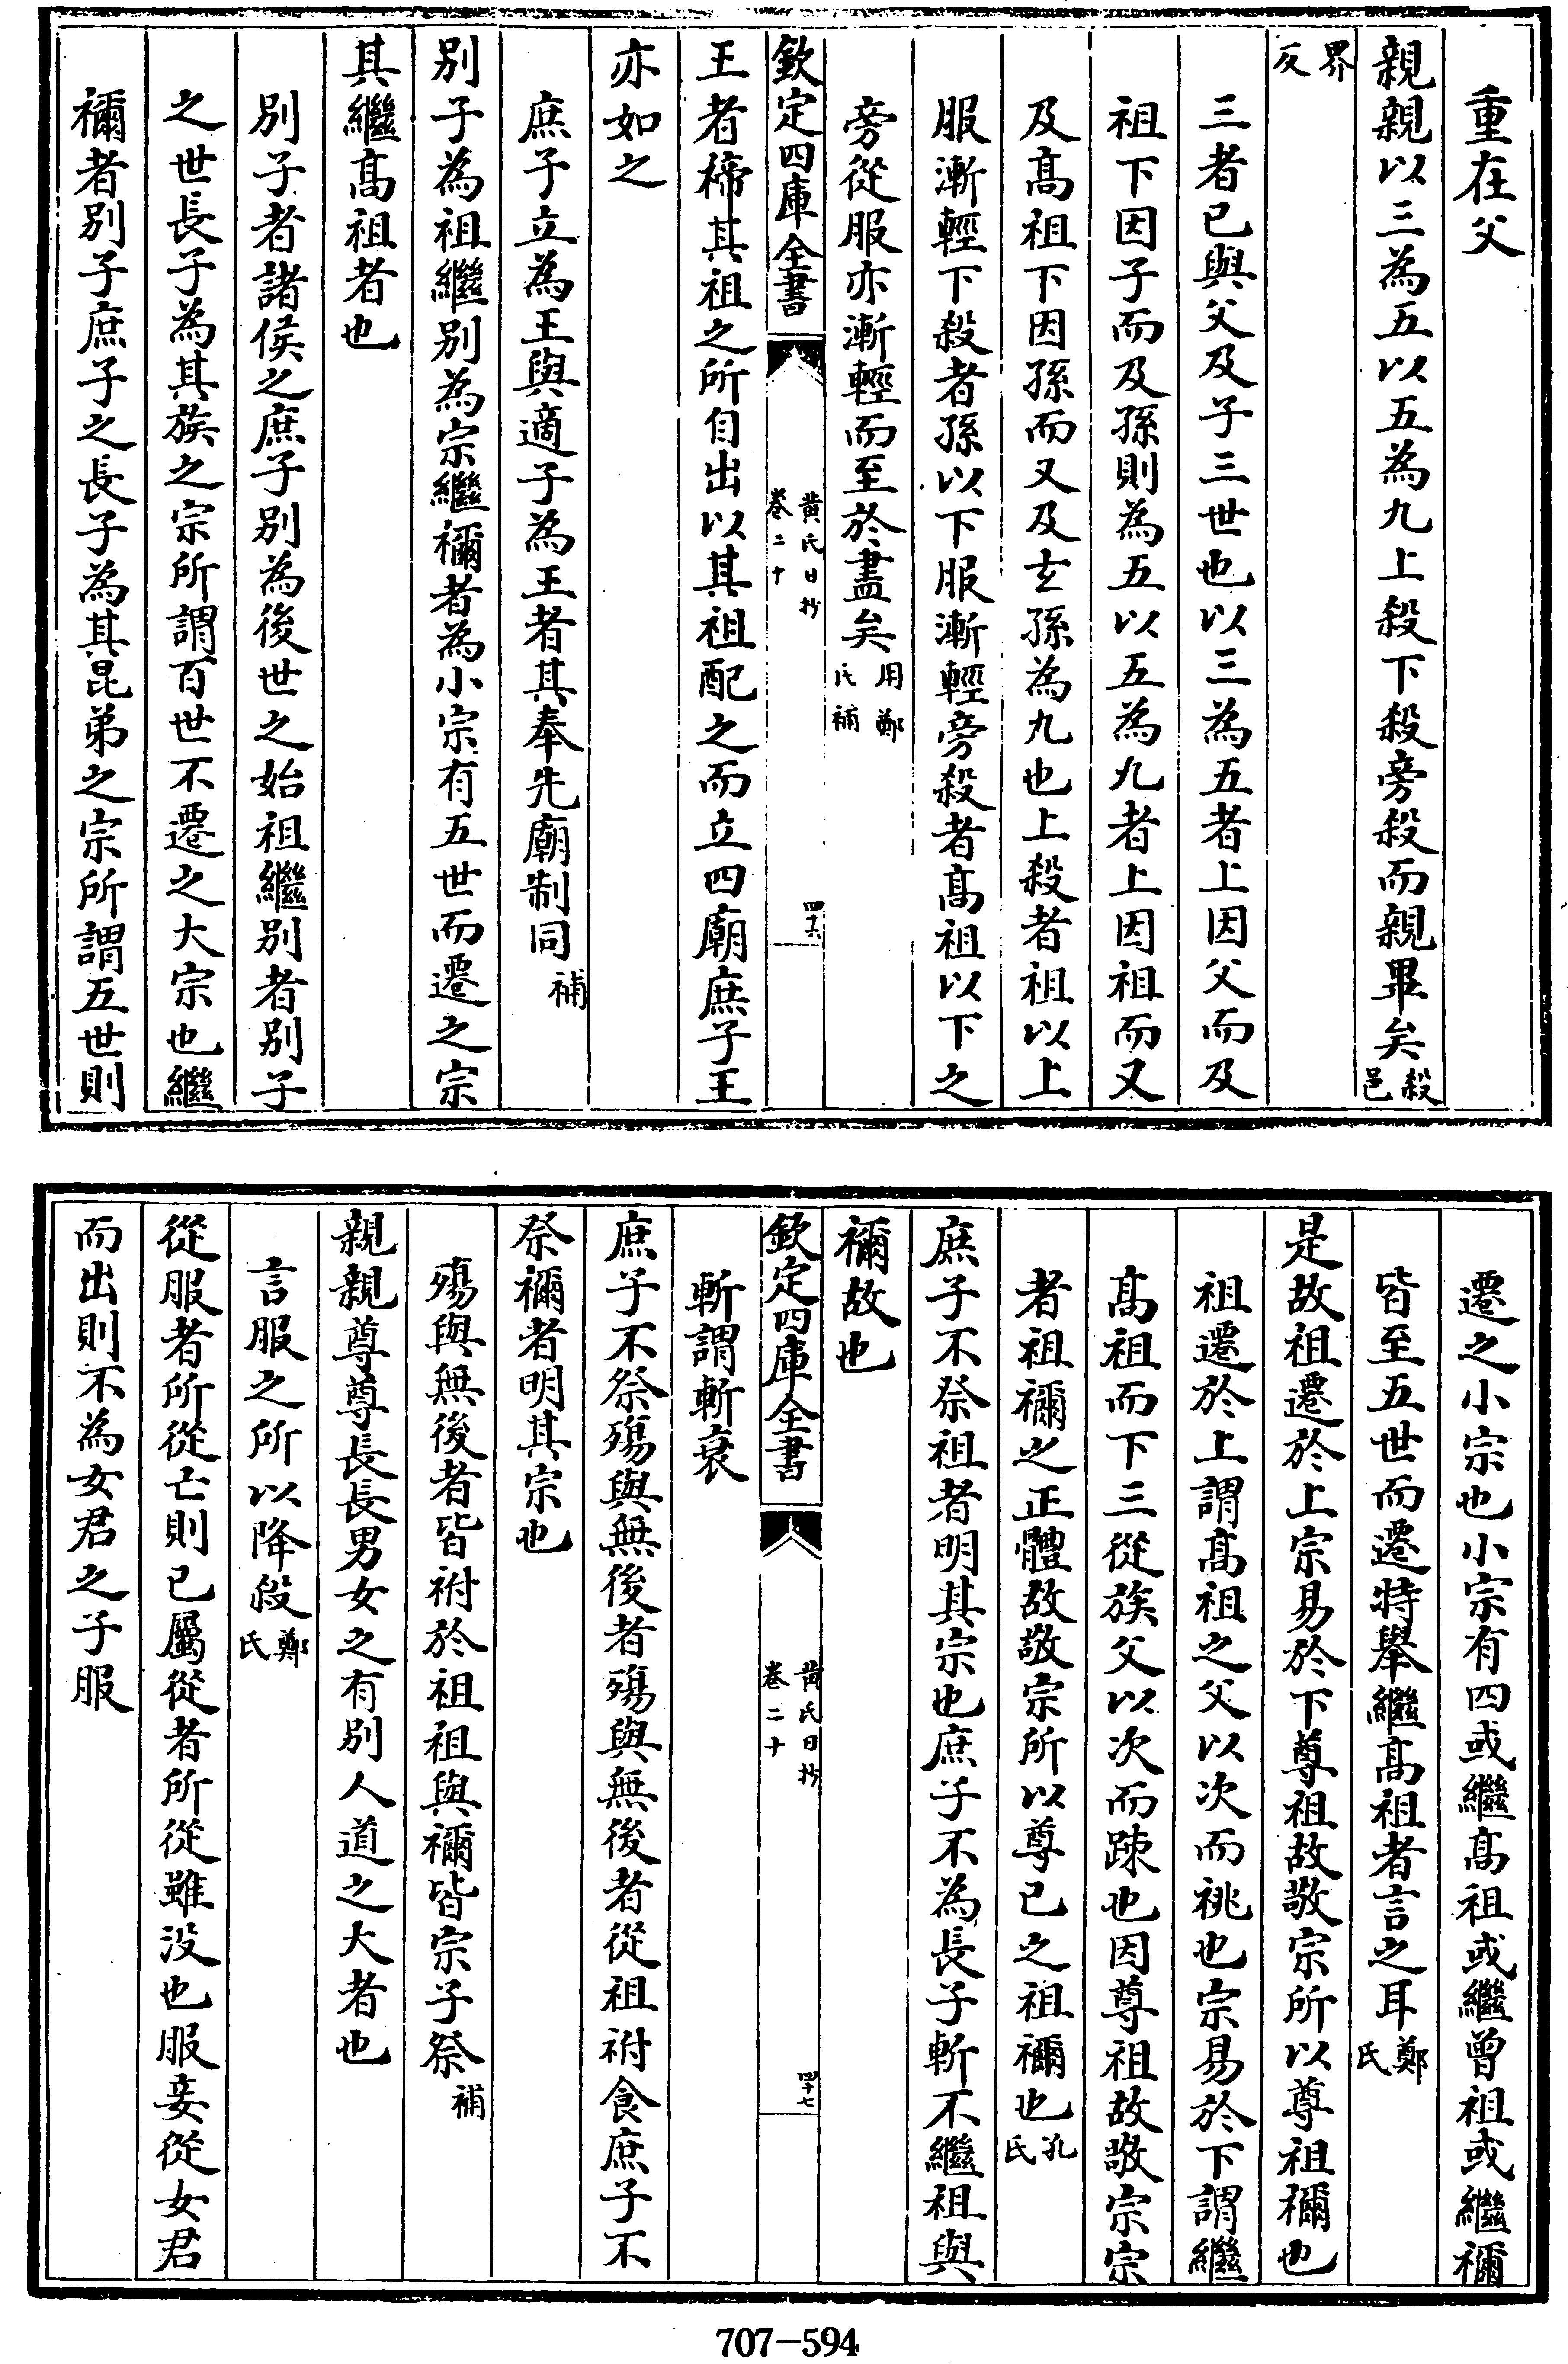 重在父
親親以三為五以五為九上殺下殺旁殺而親畢矣殺邑
界反
三者已與父及子三世也以三為五者上因父而及
祖下因子而及孫則為五以五為九者上因祖而又
及髙祖下因孫而又及𤣥孫為九也上殺者祖以上
服漸輕下殺者孫以下服漸輕旁殺者髙祖以下之
旁從服亦漸輕而至於盡矣用鄭氏補
欽定四庫全書 黄氏日抄 卷二十 四十六
王者禘其祖之所自出以其祖配之而立四廟庶子王
亦如之
庶子立為王與適子為王者其奉先廟制同補
别子為祖繼别為宗繼禰者為小宗有五世而遷之宗
其繼髙祖者也
别子者諸侯之庶子别為後世之始祖繼别者别子
之世長子為其族之宗所謂百世不遷之大宗也繼
禰者别子庶子之長子為其昆弟之宗所謂五世則
遷之小宗也小宗有四或繼髙祖或繼曾祖或繼禰
皆至五世而遷特舉繼髙祖者言之耳鄭氏
是故祖遷於上宗易於下尊祖故敬宗所以尊祖禰也
祖遷於上謂髙祖之父以次而祧也宗易於下謂繼
髙祖而下三從族父以次而踈也因尊祖故敬宗宗
者祖禰之正體故敬宗所以尊已之祖禰也孔氏
庶子不祭祖者明其宗也庶子不為長子斬不繼祖與
禰故也
欽定四庫全書 黄氏日抄 卷二十 四十七
斬謂斬衰
庶子不祭殤與無後者殤與無後者從祖祔食庶子不
祭禰者明其宗也
殤與無後者皆祔於祖祖與禰皆宗子祭補
親親尊尊長長男女之有别人道之大者也
言服之所以降殺鄭氏
從服者所從亡則已屬從者所從雖没也服妾從女君
而出則不為女君之子服
707-594